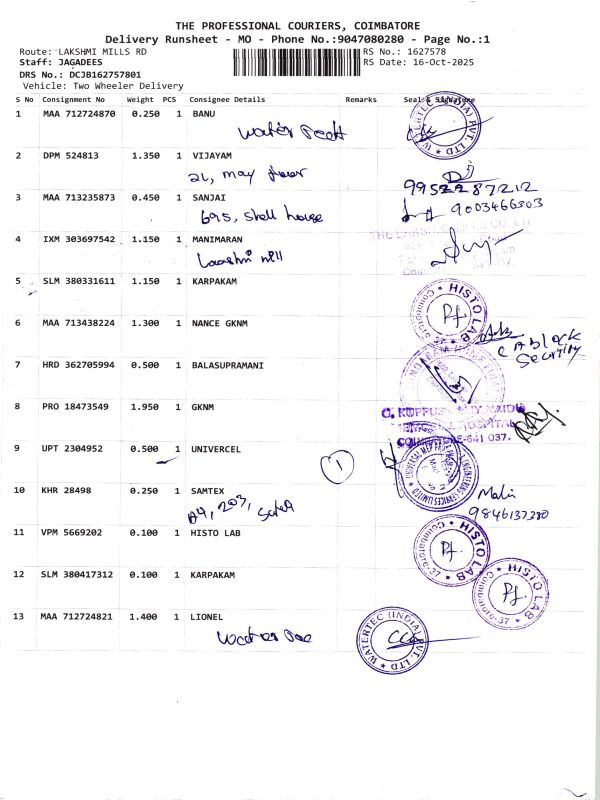 THE PROFESSIONAL COURIERS, COIMBATORE
Delivery Runsheet - MO - Phone No.:9047080280 - Page No.:1
Route: LAKSHMI MILLS RD
RS No.: 1627578
Staff: JAGADEES
RS Date: 16-Oct-2025
DRS No.: DCJB162757801
Vehicle: Two Wheeler Delivery
S No Consignment No Weight PCS Consignee Details Remarks Seal & Signature
1 MAA 712724870 0.250 1 BANU
WATERTEC (INDIA) PVT. LTD
2 DPM 524813 1.350 1 VIJAYAM
21, may
9952287212
3 MAA 713235873 0.450 1 SANJAI
695, shell house
9003466503
4 IXM 303697542 1.150 1 MANIMARAN
5 SLM 380331611 1.150 1 KARPAKAM
HISTO LAB
Coimbatore-37
6 MAA 713438224 1.300 1 NANCE GKNM
BLOCK
Security
7 HRD 362705994 0.500 1 BALASUPRAMANI
8 PRO 18473549 1.950 1 GKNM
HOSPITAL
COIMBATORE-641 037.
9 UPT 2304952 0.500 1 UNIVERCEL
1
10 KHR 28498 0.250 1 SAMTEX
A4, 203,
9846137380
11 VPM 5669202 0.100 1 HISTO LAB
HISTO LAB
Coimbatore-37
12 SLM 380417312 0.100 1 KARPAKAM
HISTO LAB
Coimbatore-37
13 MAA 712724821 1.400 1 LIONEL
WATERTEC (INDIA) PVT. LTD